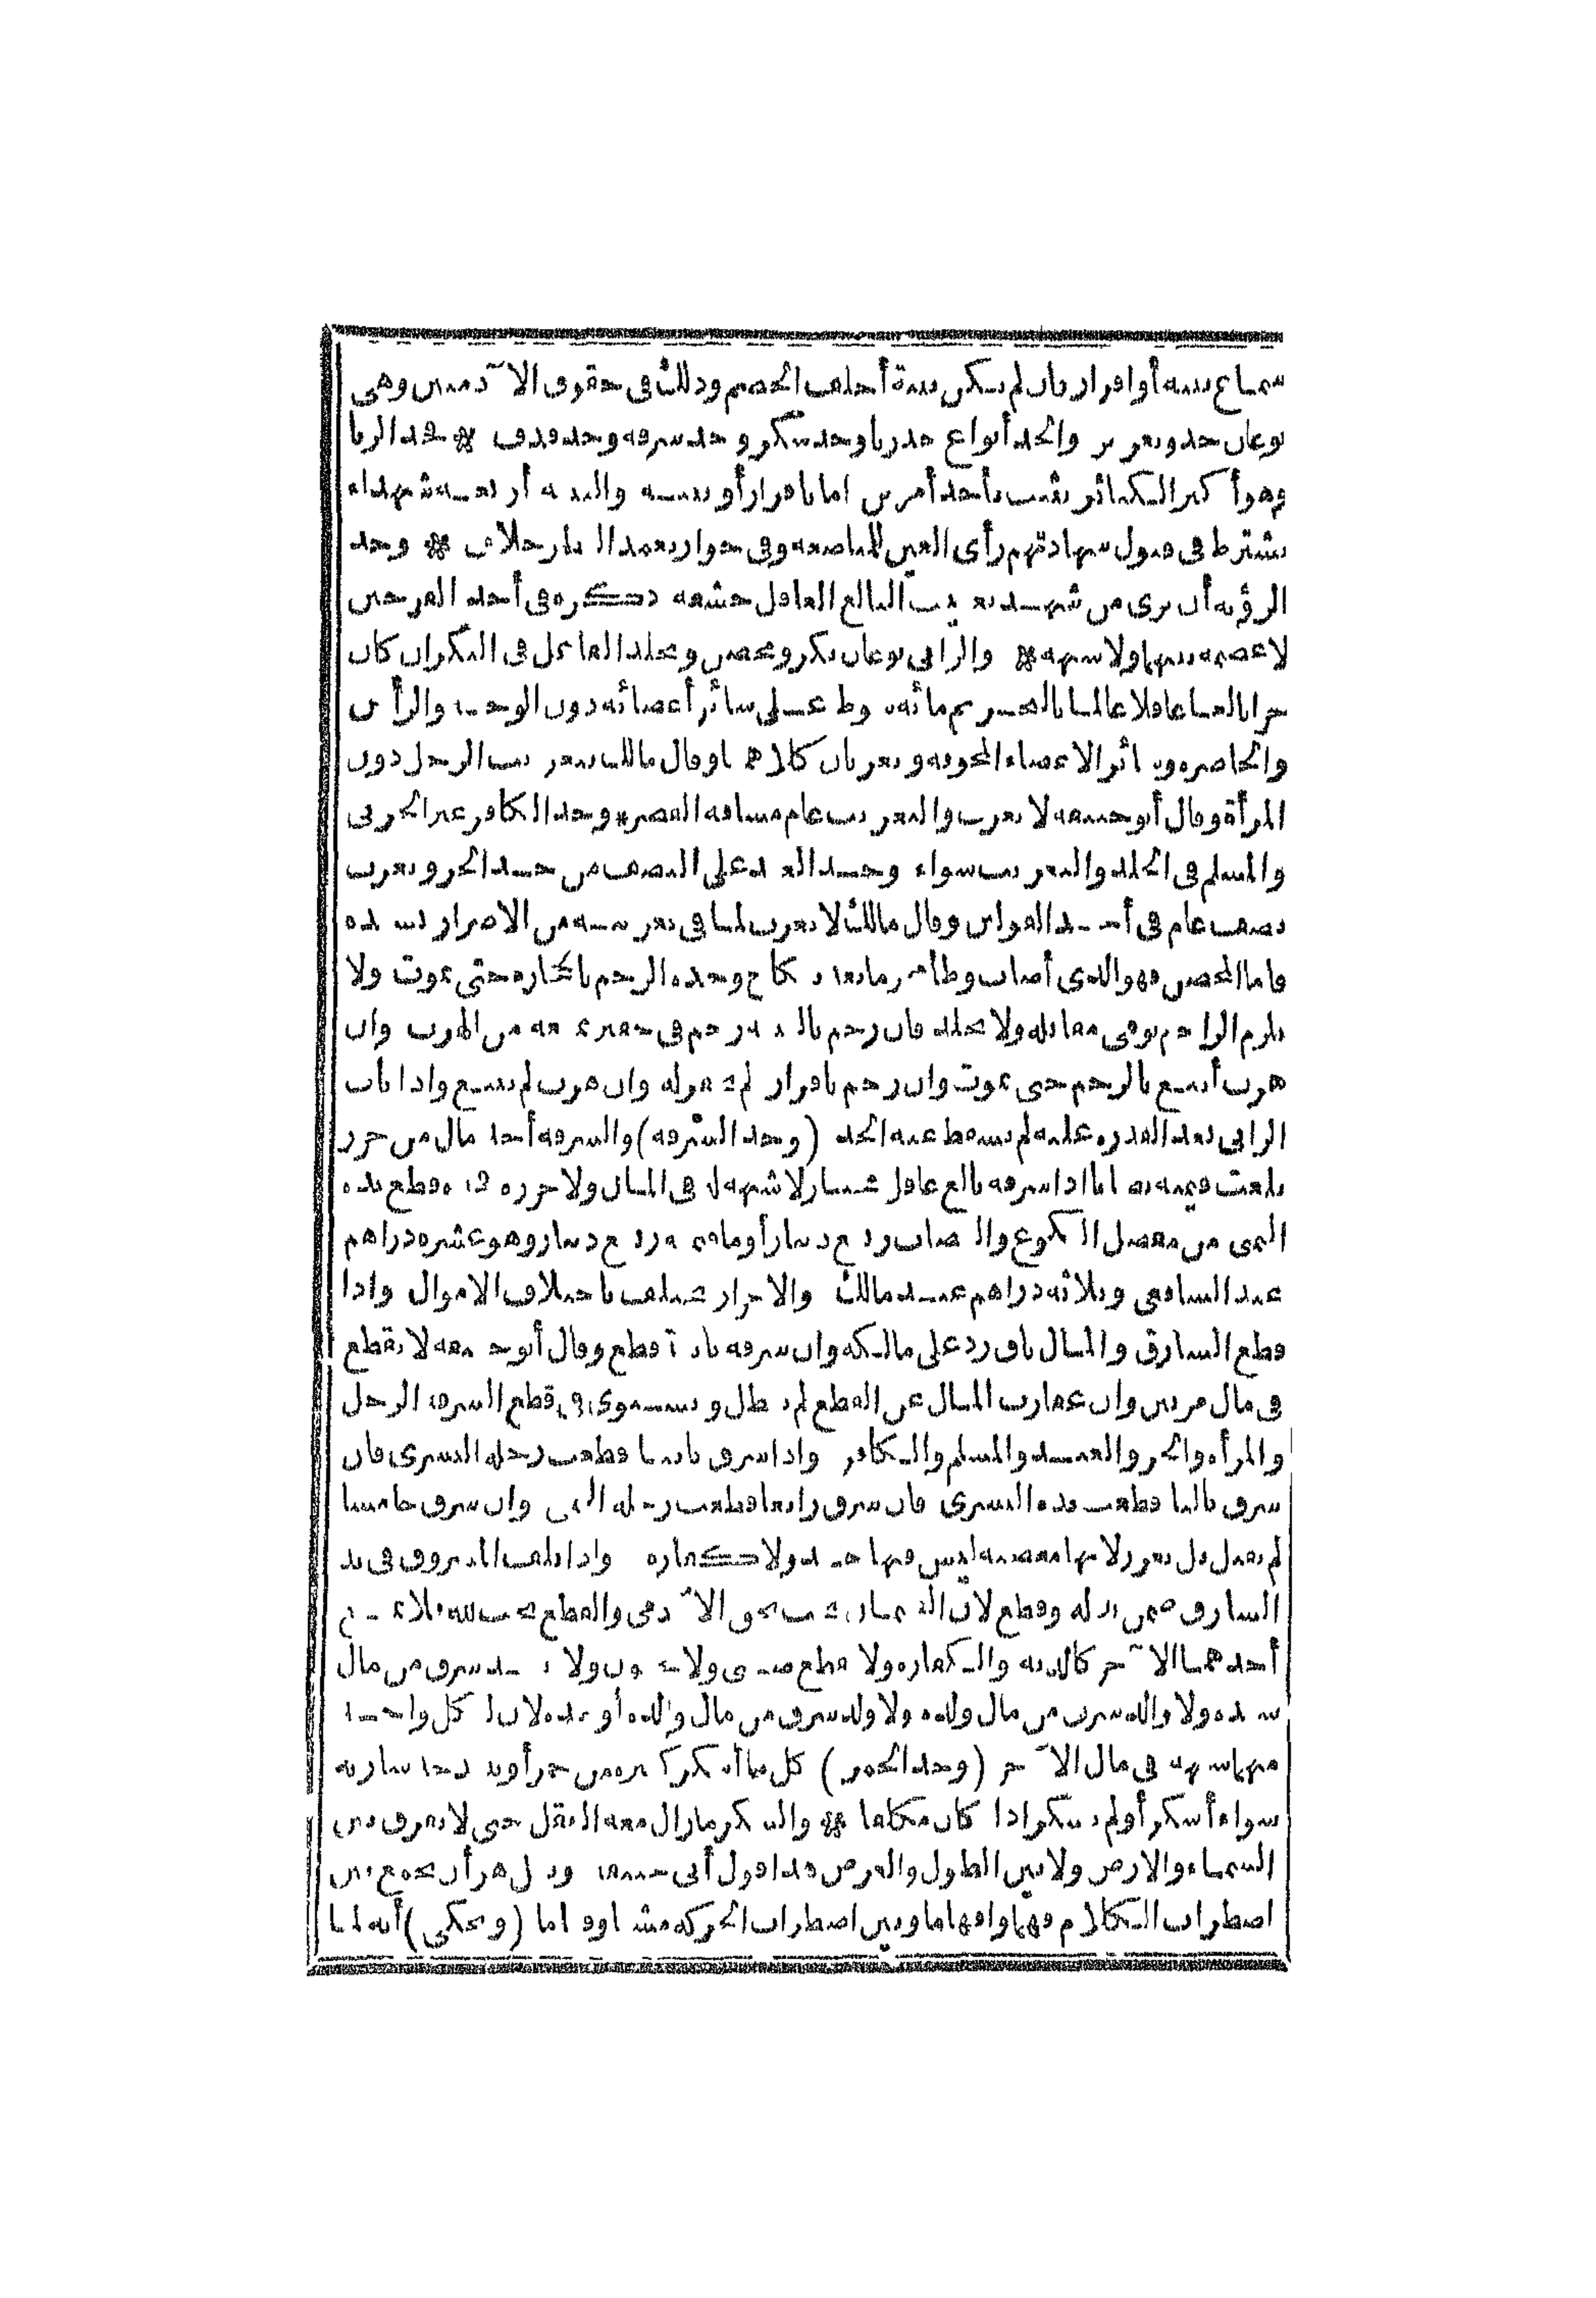 سماع بينة أو اقرار فان لم يكن بينة أحلف الخصم وذلك فى حقوق الا دميين وهى
نوعان حد وتعزير والحد أنواع حد زنا وحد سكر وحد سرقه وحد قذف * فحد الزنا
وهو أكبر الكبائر يثبت بأحد أمرين اما باقرار أو بينة والبينة أربعة شهداء
يشترط فى قبول شهادتهم رأى العين للمباضعه وفى جواز تعمد النظر خلاف * وحد
الرؤية أن يرى من شهد تغييب البالغ العاقل حشفة ذكره فى أحد الفرجين
لا عصمه بينهما ولا شبهه * والزانى نوعان بكر ومحصن ويجلد الفاعل فى البكر ان كان
حرا بالغا عاقلا عالما بالتحريم مائه سوط على سائر أعضائه دون الوجه والرأس
والخاصره وسائر الاعضاء المخوفه ويغربان كلاهما وقال مالك بتغريب الرجل دون
المرأة وقال أبو حنيفه لا يغرب والتغريب عام مسافه القصر * وحد الكافر غير الحربى
والمسلم فى الجلد والتغريب سواء وحد العبد على النصف من حد الحر ويغرب
نصف عام فى أحد القولين وقال مالك لا يغرب لما فى تغريبه من الاضرار بسيده
فاما المحصن فهو الذى أصاب وطأ محرما بعقد نكاح وحده الرجم بالحجاره حتى يموت ولا
يلزم الراجم توقى مقاتله ولا يجلد فان رجم بالبينه رجم فى حفيره تمنعه من الهرب وان
هرب أتبع بالرجم حتى يموت وان رجم باقرار لم يحفر له وان هرب لم يتبع واذا تاب
الزانى بعد القدره عليه لم يسقط عنه الحد (وحد السرقه) والسرقه أخذ مال من حرز
بلغت قيمته نصابا اذا سرقه بالغ عاقل مختار لا شبهه له فى المال ولا حرزه فتقطع يده
اليمنى من مفصل الكوع والنصاب ربع دينار أو ما قيمته ربع دينار وهو عشره دراهم
عند الشافعى وثلاثه دراهم عند مالك والاحراز تختلف باختلاف الاموال واذا
قطع السارق والمال باق رد على مالكه وان سرقه ثانية قطع وقال أبو حنيفه لا يقطع
فى مال مرتين وان عفا رب المال عن القطع لم يبطل ويستوى فى قطع السرقه الرجل
والمرأه والحر والعبد والمسلم والكافر واذا سرق ثانيا قطعت رجله اليسرى فان
سرق ثالثا قطعت يده اليسرى فان سرق رابعا قطعت رجله اليمنى وان سرق خامسا
لم يقتل بل يعزر لانها معصيه ليس فيها حد ولا كفاره واذا تلف المسروق فى يد
السارق ضمن بدله وقطع لان الضمان يجب بحق الا دمى والقطع يجب لله فلا يمنع
أحدهما الا خر كالديه والكفاره ولا يقطع صبى ولا مجنون ولا عبد سرق من مال
سيده ولا والد سرق من مال ولده ولا ولد سرق من مال والده أو جده لان لكل واحد
منهما شبهه فى مال الا خر (وحد الخمر) كل ما أسكر كثيره من خمر أو نبيذ حد شاربه
سواء أسكر أو لم يسكر اذا كان مكلفا * والسكر ما زال معه العقل حتى لا يفرق بين
السماء والارض ولا بين الطول والعرض هذا قول أبى حنيفه وقيل هو أن يجمع بين
اضطراب الكلام فهما وافهاما وبين اضطراب الحركه مشيا وقياما (ويحكى) أنه لما